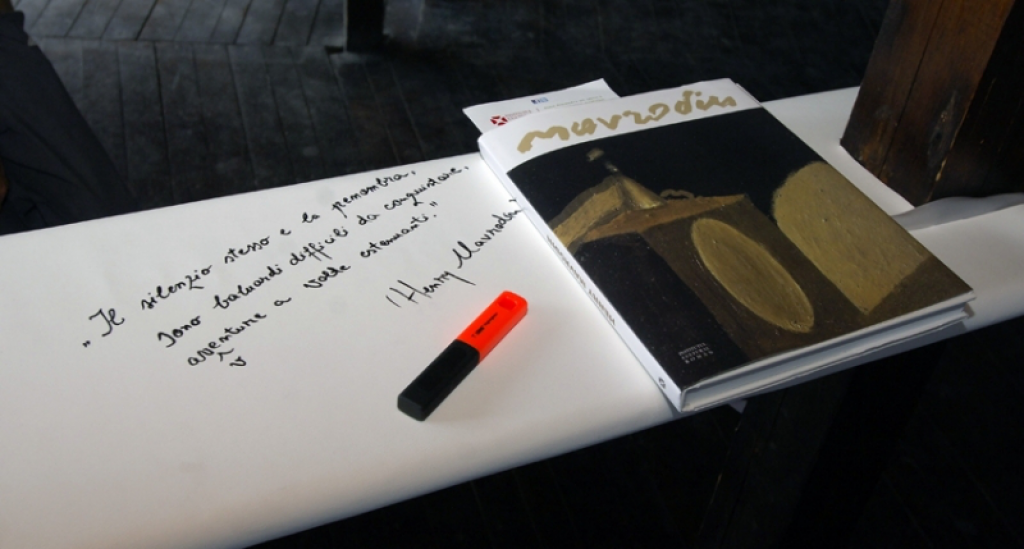 „Il silenzio stesso e la penombra,
sono baluardi difficili da conquistare,
avventure a volte estenuanti."
(Henry Mavrodin
mavrodin